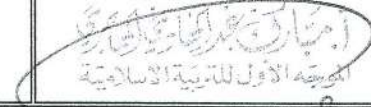 أ. مبارك عبد الهادي الهاجري
الموجه الأول للتربية الإسلامية